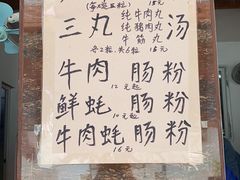 (每碗五粒) 15元
三丸汤
纯牛肉丸
纯猪肉丸
牛筋丸
各2粒,共6粒 15元
牛肉肠粉
12元起
鲜蚝肠粉
10元起
牛肉蚝肠粉
16元